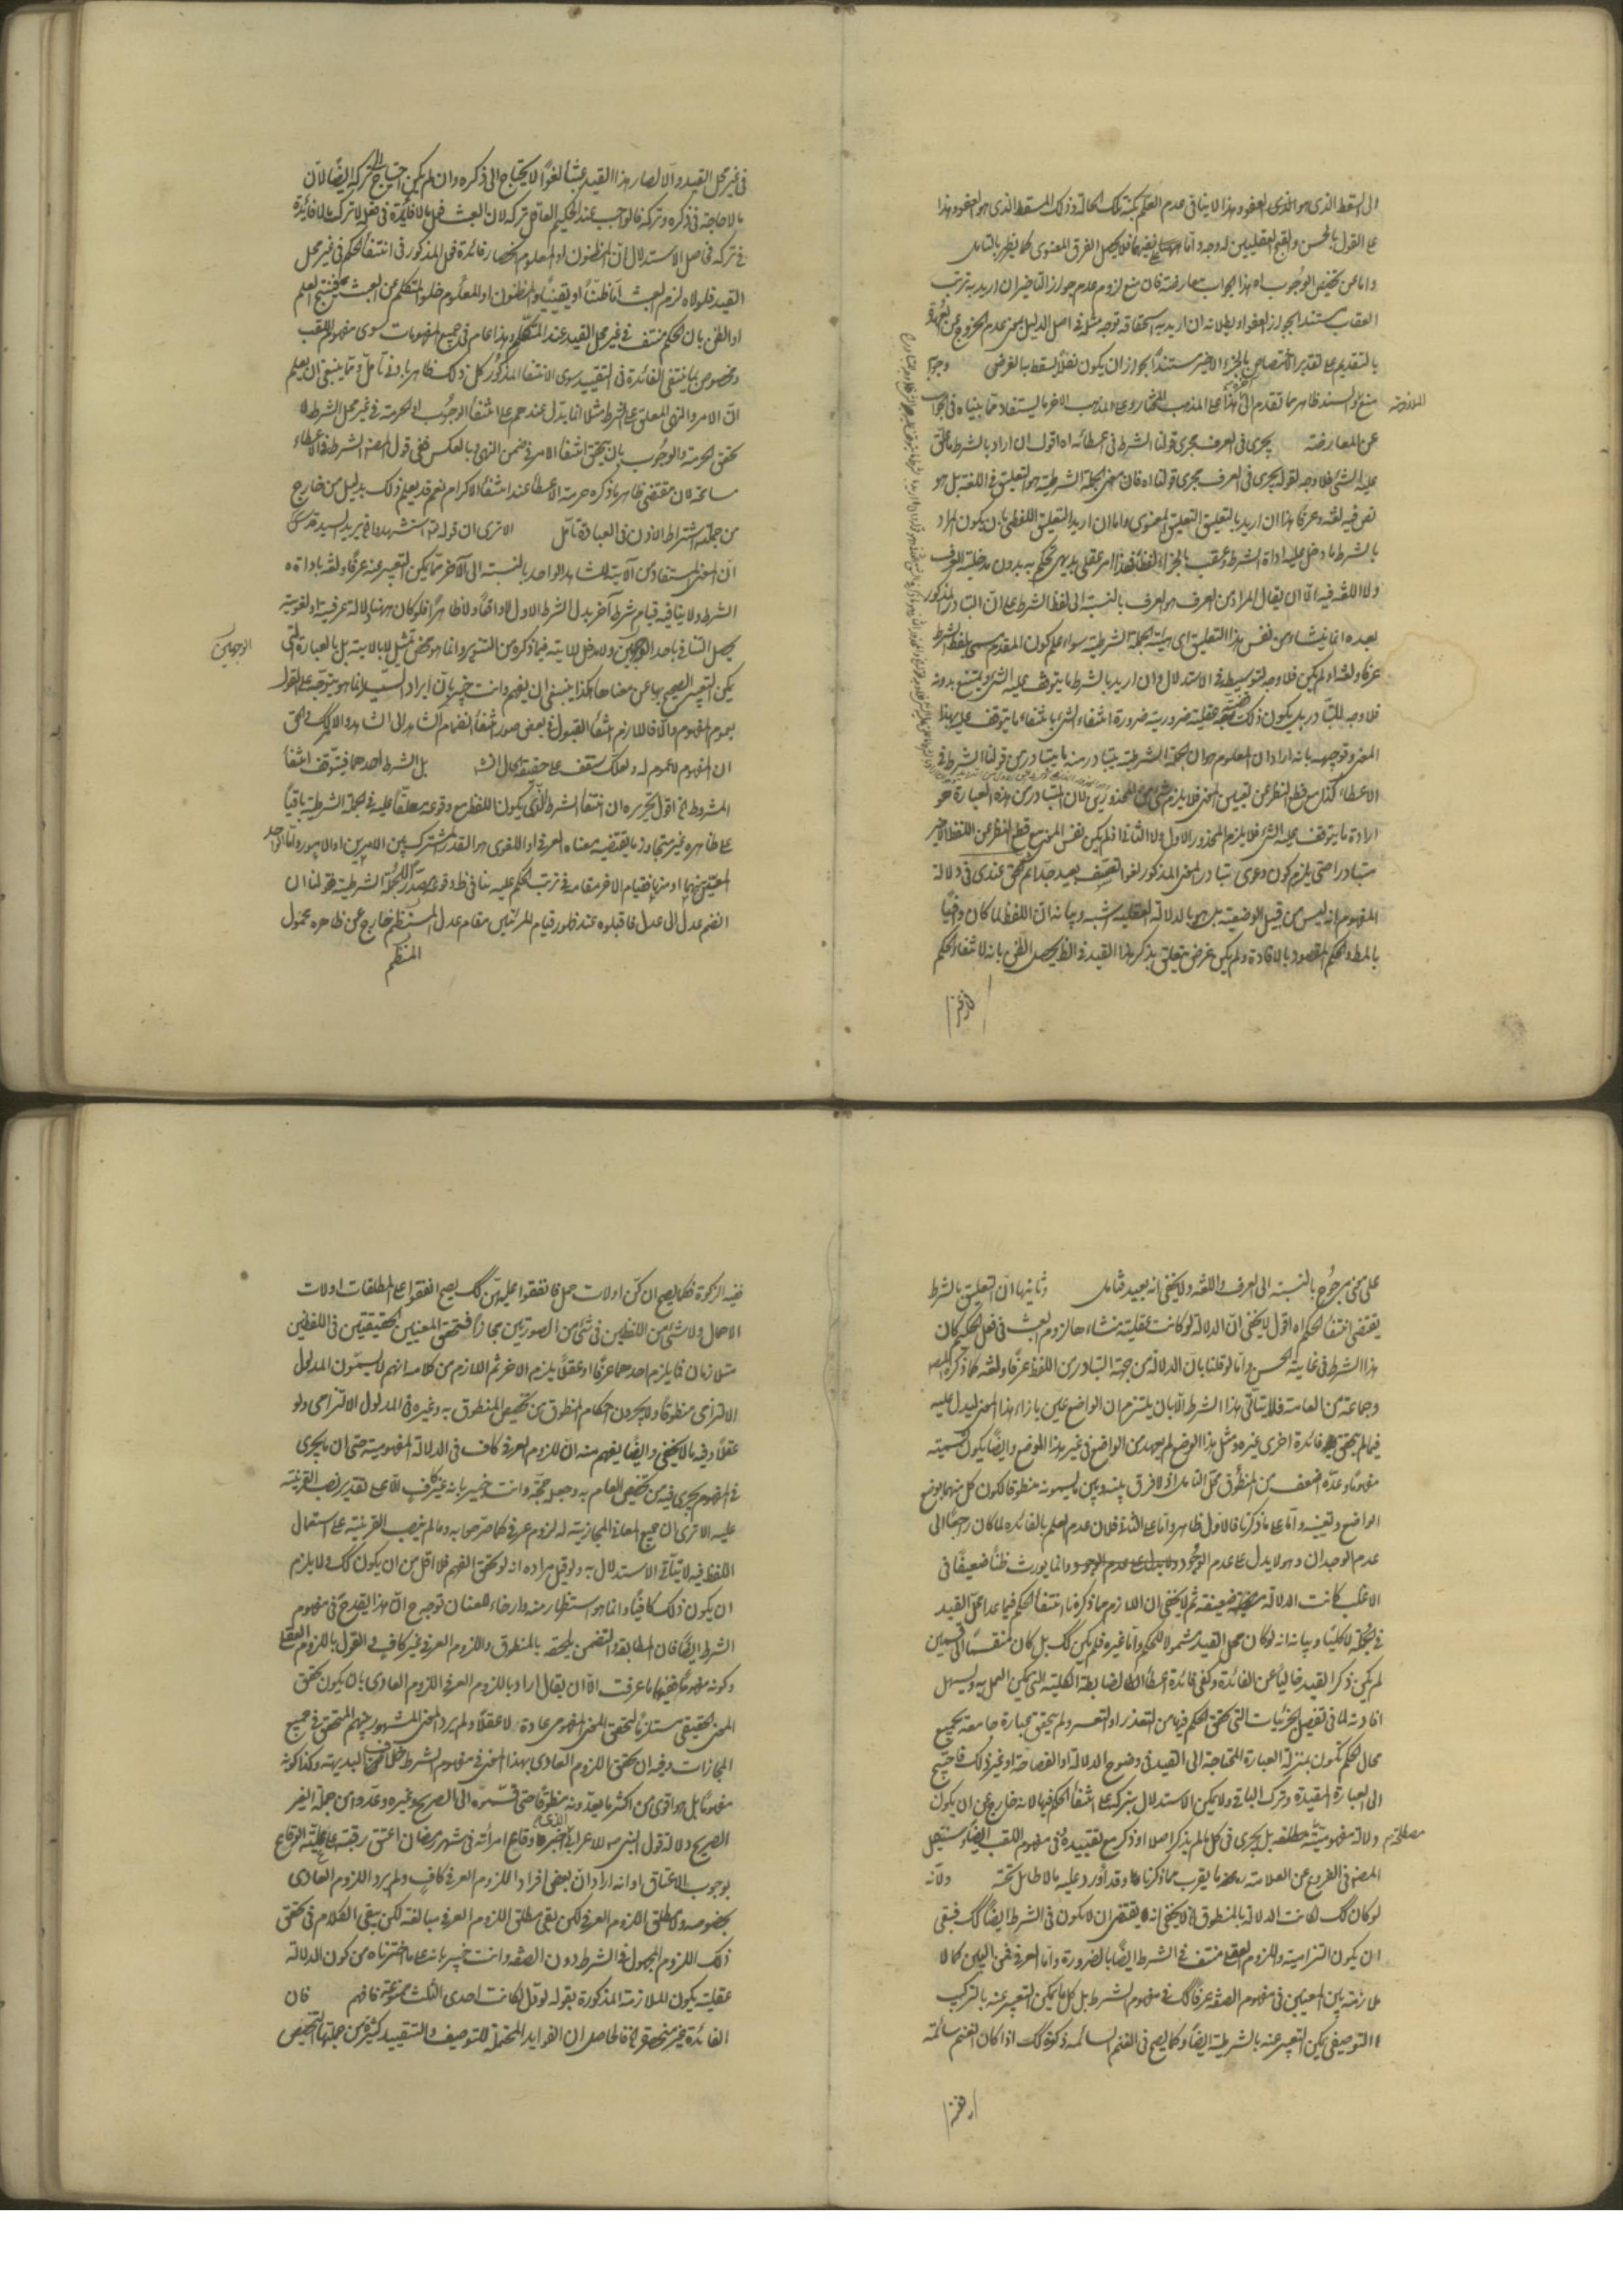 الى المسقط الذى هو العفو وهذا لا ينافى عدم العلم بكنه تلك الحالة وذلك المسقط الذى هو العفو وهذا
على القول بالحسن والقبح العقليين له وجه واما على غيرهما فلا يحصل الفرق المعنوى كما يظهر بالتأمل
العقاب مستند الجواز العفو وبطلانه ان اريد به استحقاقه توجه مثله فى اصل الدليل بمعنى عدم الخروج عن العهدة
بالتقديم على تقدير الاختصاص بالجزء الاخير مستندا بجواز ان يكون نفلا يسقط به الفرض وجوابه
عن المعارضة يجرى فى العرف مجرى قولنا الشرط فى اعطائه اه اقول ان اراد بالشرط ما علق
عليه الشئ فلا وجه لقوله يجرى فى العرف مجرى قولنا اه فان معنى الجملة الشرطية هو التعليق فى اللغة بل هو
نص فيه لغة وعرفا هذا ان اريد بالتعليق التعليق المعنوى واما ان اريد التعليق اللفظى بان يكون المراد
بالشرط ما دخل عليه اداة الشرط وعقب بالجزاء لفظا فهذا امر عقلى بديهى يحكم به بدون مدخلية العرف
ولا اللغة فيه الا ان يقال المراد من العرف هو العرف بالنسبة الى لفظ الشرط على ان التبادر المذكور
بعيده انما ينشاء من نفس هذا التعليق اى هيئة الجملة الشرطية سواء علم كون المقدم يسمى بلفظ الشرط
عرفا ولغة او لم يكن فلا وجه لتوسيطه فى الاستدلال وان اريد بالشرط ما يتوقف عليه الشئ ويمتنع بدونه
فلا وجه للتبادر بل يكون ذلك قضية عقلية ضرورية ضرورة انتفاء الشئ بانتفاء ما يتوقف عليه بهذا
المعنى وتوجيهه بانه اراد ان المعلوم هو ان الجملة الشرطية يتبادر منه ما يتبادر من قولنا الشرط فى
الاعطاء كذا مع قطع النظر عن تعيين المعنى فلا يلزم شئ من المحذورين لان المتبادر من هذه العبارة هو
ارادة ما يتوقف عليه الشئ فلا يلزم المحذور الاول ولا الثانى اذ لم يكن نفس المعنى مع قطع النظر عن اللفظ الاخير
متبادرا حتى يلزم كون دعوى تبادر المعنى المذكور لغوا تعسف بعيد جدا ثم التحقيق عندى فى دلالة
المفهوم انه ليس من قبيل الوضعية بل هو بالدلالة العقلية اشبه وبيانه ان اللفظ لما كان وافيا
بالمط والحكم المقصود بالافادة ولم يكن غرض يتعلق بذكر هذا القيد فى الظ يحصل الظن بانه لانتفاء الحكم
فى غير محل القيد والا لصار هذا القيد عبثا لغوا لا يحتاج الى ذكره وان لم يكن احتياج الى تركه ايضا لان
ما لا حاجة فى ذكره وتركه فالواجب عند الحكيم العاقل تركه لان العبث فعل ما لا فائدة فى فعله لا ترك ما لا فائدة
فى تركه فحاصل الاستدلال ان المظنون او المعلوم انحصار فائدة محل المذكور فى انتفاء الحكم فى غير محل
القيد فلولاه لزم العبث اما ظنا او يقينيا والمظنون او المعلوم خلو المتكلم عن العبث فينتج العلم
او الظن بان الحكم منتف فى غير محل القيد عند المتكلم وهذا عام فى جميع المفهومات سوى مفهوم اللقب
ومخصوص بما ينتفى الفائدة فى التقييد سوى الانتفاء المذكور كل ذلك ظاهر بادنى تأمل ومما ينبغى ان يعلم
ان الامر والنهى المعلق على الشرط مثلا انما يدل عندهم على انتفاء الوجوب او الحرمة فى غير محل الشرط لا
تحقق الحرمة والوجوب بان يتحقق انتفاء الامر فى ضمن النهى وبالعكس ففى قول المصنف الشرط فى الاعطاء
مسامحة لان مقتضى ظاهر ما ذكره حرمة الاعطاء عند انتفاء الاكرام نعم قد يعلم ذلك بدليل من خارج
من جملة اشتراط الاذن فى العبادة تأمل الا ترى ان قوله تعالى استشهدوا
ان المعنى المستفاد من الآية للشاهد الواحد بالنسبة الى الآخر مما يمكن التعبير عنه عرفا ولغة باداة
الشرط ولا ينافيه قيام شرط آخر بدل الشرط الاول لا واقعا ولا ظاهرا فلو كان هنا دلالة عرفية او لغوية
يحصل التنافى باحد الوجهين ولا دخل للآية فيما ذكره من التنوير وانما هو محض تمثيل لا بالآية بل بالعبارة التى
الوجهين
يمكن التعبير الصحيح بها عن معناها هكذا ينبغى ان يفهم وانت خبير بان ايراد السيد انما هو متوجه على القول
بعموم المفهوم والا فاللازم انتفاء القبول فى بعض صور انتفاء انضمام الشاهد الى الشاهد والامر كك فى الحق
ان المفهوم لا عموم له ولعلك ستقف على حقيقة الحال انشاء بل الشرط احدهما فيتوقف انتفاء
المشروط اه اقول تحريره ان انتفاء الشرط الذى يكون اللفظ مع وقوعه معلقا عليه فى الجملة الشرطية باقيا
على ظاهره غير متجاوز ما يقتضيه معناه العرفى او اللغوى هو القدر المشترك بين الامرين او الامور واما احد
المعنيين منهما او منها فقيام الآخر مقامه فى ترتب الحكم عليه ينافى ظ وقوعه صدر الجملة الشرطية فقولنا ان
انضم عدل الى عدل فاقبلوه عند ظهور قيام المرئتين مقام عدل المنظم خارج عن ظاهره محمول
المنظم
على معنى مرجوح بالنسبة الى العرف واللغة ولا يخفى انه بعيد فتأمل وثانيها ان التعليق بالشرط
يقتضى انتفاء الحكم اه اقول لا يخفى ان الدلالة لو كانت عقلية منشاءها لزوم العبث فى فعل الحكيم كان
هذا الشرط فى غاية الحسن واما لو قلنا بان الدلالة من جهة التبادر من اللفظ عرفا ولغة كما ذكره المصنف
وجماعة من العامة فلا يتأتى هذا الشرط الا بان يلتزم ان الواضع عين بازاء هذا المعنى ليدل عليه
فيما لم يتحقق فائدة اخرى غيره ومثل هذا الوضع لم يعهد من الواضع فى غير هذا الموضع وايضا يكون تسميته
مفهوما وعده اضعف من المنطوق محل التأمل اذ لا فرق بينه وبين ما يسمونه منطوقا لكون كل منهما بوضع
الواضع وتعيينه واما على ما ذكرنا فالاول ظاهر واما على الثانى فلان عدم العلم بالفائدة لما كان راجعا الى
عدم الوجدان وهو لا يدل على عدم الوجود وانما يورث ظنا ضعيفا فى
الاغلب كانت الدلالة ضعيفة ثم لا يخفى ان اللازم مما ذكرنا انتفاء الحكم فيما عدا محل القيد
فى الجملة لا كليا وبيانه انه لو كان محل القيد مشمولا للحكم واما غيره فلم يكن كك بل كان منقسما الى قسمين
لم يكن ذكر القيد خاليا عن الفائدة وكفى فائدة اعطاء الضابطة الكلية التى يمكن العمل به ويسهل
افادته لما فى تفصيل الجزئيات التى تحقق الحكم فيها من التعذر او التعسر ولم يتحقق عبارة جامعة لجميع
محال الحكم تكون بمنزلة العبارة المحتاجة الى القيد فى وضوح الدلالة او الفصاحة او غير ذلك فاحتيج
الى العبارة المقيدة وترك الباقى ولا يمكن الاستدلال بتركه على انتفاء الحكم فيها لانه خارج عن ان يكون
دلالة مفهومية مطلقه بل يجرى فى كل ما لم يذكر اصلا او ذكر مع تقييده فى مفهوم اللقب ايضا وسينقل
المصنف فى الفروع عن العلامة ره ما يقرب مما ذكرنا وقد اورد عليه ما لا طائل تحته ولانه
لو كان كك لكانت الدلالة بالمنطوق اه لا يخفى انه يقتضى ان لا يكون فى الشرط ايضا كك فبقى
ان يكون التزامية واللزوم العقلى منتف فى الشرط ايضا بالضرورة واما العرفى فمن البين كمال
ملازمة بين المعنيين فى مفهوم الصفة عرفا كك فى مفهوم الشرط بل كل ما يمكن التعبير عنه بالتركيب
التوصيفى يمكن التعبير عنه بالشرطية ايضا وكما يصح فى الغنم السائمة زكوة كك اذا كان الغنم سائمة
ففيه الزكوة فكما يصح ان كن اولات حمل فانفقوا عليهن كك يصح انفقوا على المطلقات اولات
الاحمال ولا شئ من اللفظين فى شئ من الصورتين مجازا فتحقق المعنيين الحقيقيتين فى اللفظين
متلازمان فما يلزم احدهما عرفا او عقلا يلزم الآخر ثم اللازم من كلامه انهم لا يسمون المدلول
الالتزامى منطوقا ولا يجرون احكام المنطوق من تخصيص المنطوق به وغيره فى المدلول الالتزامى ولو
عقلا وفيه ما لا يخفى وايضا يفهم منه ان اللزوم العرفى كاف فى الدلالة المفهومية حتى ان ما يجرى
فى المفهوم يجرى فيه من تخصيص العام به وجعله حجة وانت خبير بانه غير كاف الا على تقدير نصب القرينة
عليه الا ترى ان جميع المعانى المجازية له لزوم عرفى كما صرحوا به وما لم ينصب القرينة على استعمال
اللفظ فيه لا يتأتى الاستدلال به ولو قيل مراده انه لو تحقق الفهم فلا اقل من ان يكون كك ولا يلزم
ان يكون ذلك كافيا وانما هو استظهار منه وارخاء للعنان توجيه ان هذا يقدح فى مفهوم
الشرط ايضا فان المطابقة والتضمن يلحقه بالمنطوق واللزوم العرفى غير كاف فى القول باللزوم العقلى
وكونه مفهوما ففيهما ما عرفت الا ان يقال اراد باللزوم العرفى اللزوم العادى بان يكون تحقق
المعنى الحقيقى مستلزما لتحقق المعنى المفهومى عادة لا عقلا ولم يرد المعنى المشهور بينهم المتحقق فى جميع
المجازات وفيه ان تحقق اللزوم العادى بهذا المعنى فى مفهوم الشرط خلاف البديهة وكذا كونه
مفهوما بل هو اقوى من اكثر ما يعدونه منطوقا حتى قسموه الى الصريح وغيره وعدوا من جملة الغير
الصريح دلالة قول النبى ص للاعرابى الذى اخبره وقاع امرأته فى شهر رمضان اعتق رقبة على علية الوقاع
بوجوب الاعتاق او انه اراد ان بعض افراد اللزوم العرفى كاف ولم يرد اللزوم العادى
بخصوصه ومطلق اللزوم العرفى لكن بقى مطلق اللزوم العرفى مبالغة لكن يبقى الكلام فى تحقق
ذلك اللزوم المجهول فى الشرط دون الصفة وانت خبير بانه على ما اخترناه من كون الدلالة
عقلية يكون الملازمة المذكورة بقوله لو دل لكانت احدى الثلث ممنوعة فافهم فان
الفائدة غير منحصرة اه فالحاصل ان الفوايد المحتملة للتوصيف والتقييد كثيرة من جملتها التخصيص